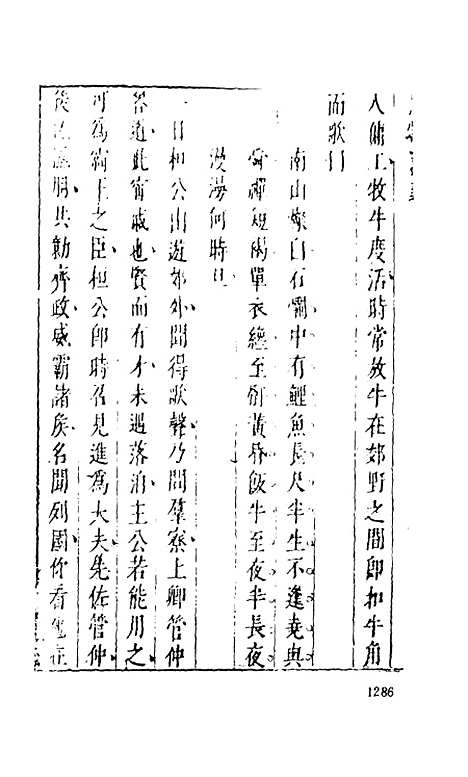 人傭工牧牛度活時常放牛在郊野之間卽扣牛角
而歌曰
南山燦白石爛中有鯉魚長尺半生不逢堯與
舜禪短褐單衣纔至骭黃昏飯牛至夜半長夜
漫漫何時旦
一日桓公出遊郊外聞得歌聲乃問羣寮上卿管仲
答道此甯戚也賢而有才未遇落泊主公若能用之
可為霸王之臣桓公卽時召見進為大夫凭佐管仲
後 隰朋共勷齊政威霸諸侯名聞列國你看他在
1286